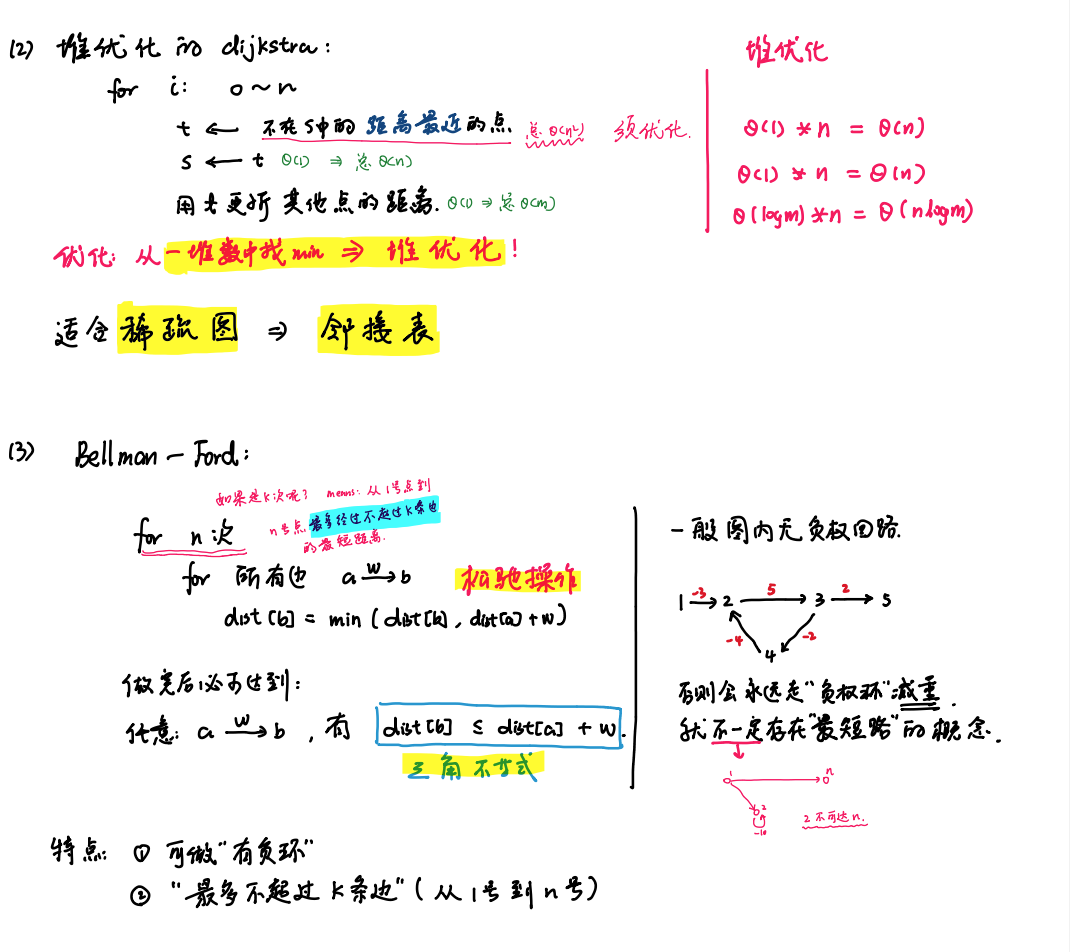 (2) 堆优化的 dijkstra:
for i: 0~n
t ← 不在S中的 距离最近的点. 总 O(n²) 须优化.
S ← t O(1) ⇒ 总 O(n)
用t更新其他点的距离. O(1) ⇒ 总 O(m)
优化: 从一堆数中找min ⇒ 堆优化!
适合稀疏图 ⇒ 邻接表
堆优化
O(1) * n = O(n)
O(1) * n = O(n)
O(logm) * n = O(nlogm)
(3) Bellman-Ford:
如果是k次呢? means: 从1号点到
n号点 最多经过不超过k条边
的最短距离.
for n次
for 所有边 a →w b 松弛操作
dist[b] = min(dist[b], dist[a]+w)
做完后必可达到:
任意: a →w b, 有 dist[b] ≤ dist[a] + w.
三角不等式
一般图内无负权回路.
1 → 2 → 3 → 5
-3 5 2
-4 -2
4
否则会永远走"负权环"减重.
就不一定存在"最短路"的概念.
1 n
2
-10
2不可达n.
特点: ① 可做"有负环"
② "最多不超过k条边"(从1号到n号)